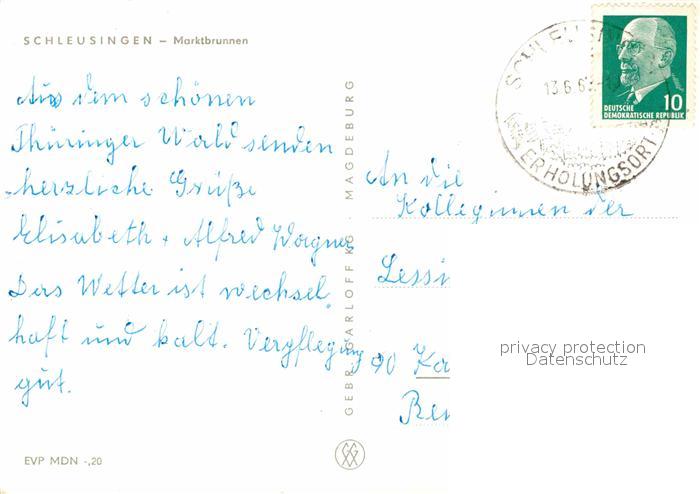 SCHLEUSINGEN – Marktbrunnen
Aus dem schönen
Thüringer Wald senden
herzliche Grüße
Elisabeth + Alfred Wagner
Das Wetter ist wechsel
haft und kalt. Verpflegung
gut.
EVP MDN -,20
GEBR. GARLOFF KG MAGDEBURG
13.6.6
ERHOLUNGSORT
DEUTSCHE
DEMOKRATISCHE REPUBLIK
10
An die
Kolleginnen der
Lessi
90
privacy protection
Datenschutz